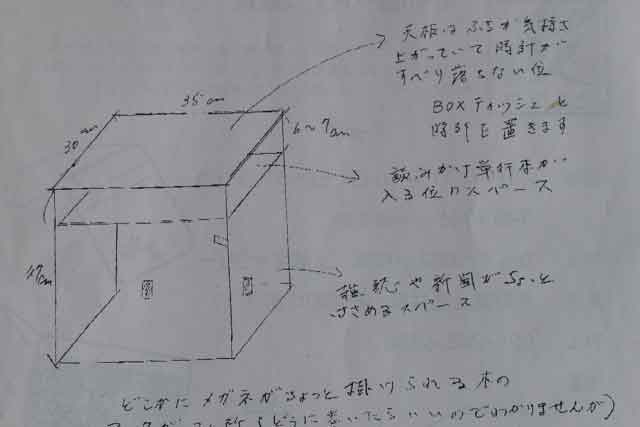 天板はふちが気持ち
上がっていて時計が
すべり落ちない位
BOXティッシュと
時計を置きます
35cm
30cm
6〜7cm
読みかけ単行本が
入る位のスペース
47cm
雑誌や新聞がちょっと
はさめるスペース
どこかにメガネがちょっと掛けられる木の
どこに書いたらいいのでわかりませんが)